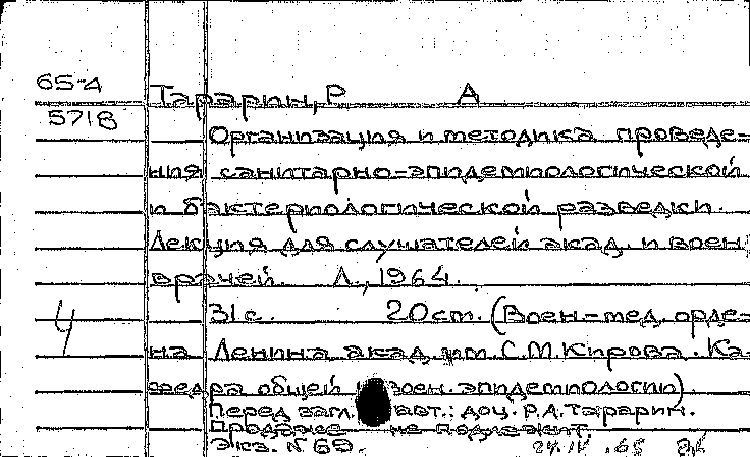 65-4
5718
Тарарин, Р А
Организация и методика проведе-
ния санитарно-эпидемиологической
и бактериологической разведки.
Лекция для слушателей акад. и воен.
врачей. Л., 1964.
31 с. 20 см. (Воен-мед. орде-
4
на Ленина акад. им. С.М. Кирова. Ка-
федра общей и воен. эпидемиологии).
Перед загл. авт.: доц. Р.А. Тарарин.
Продаже не подлежит.
Экз. № 69.